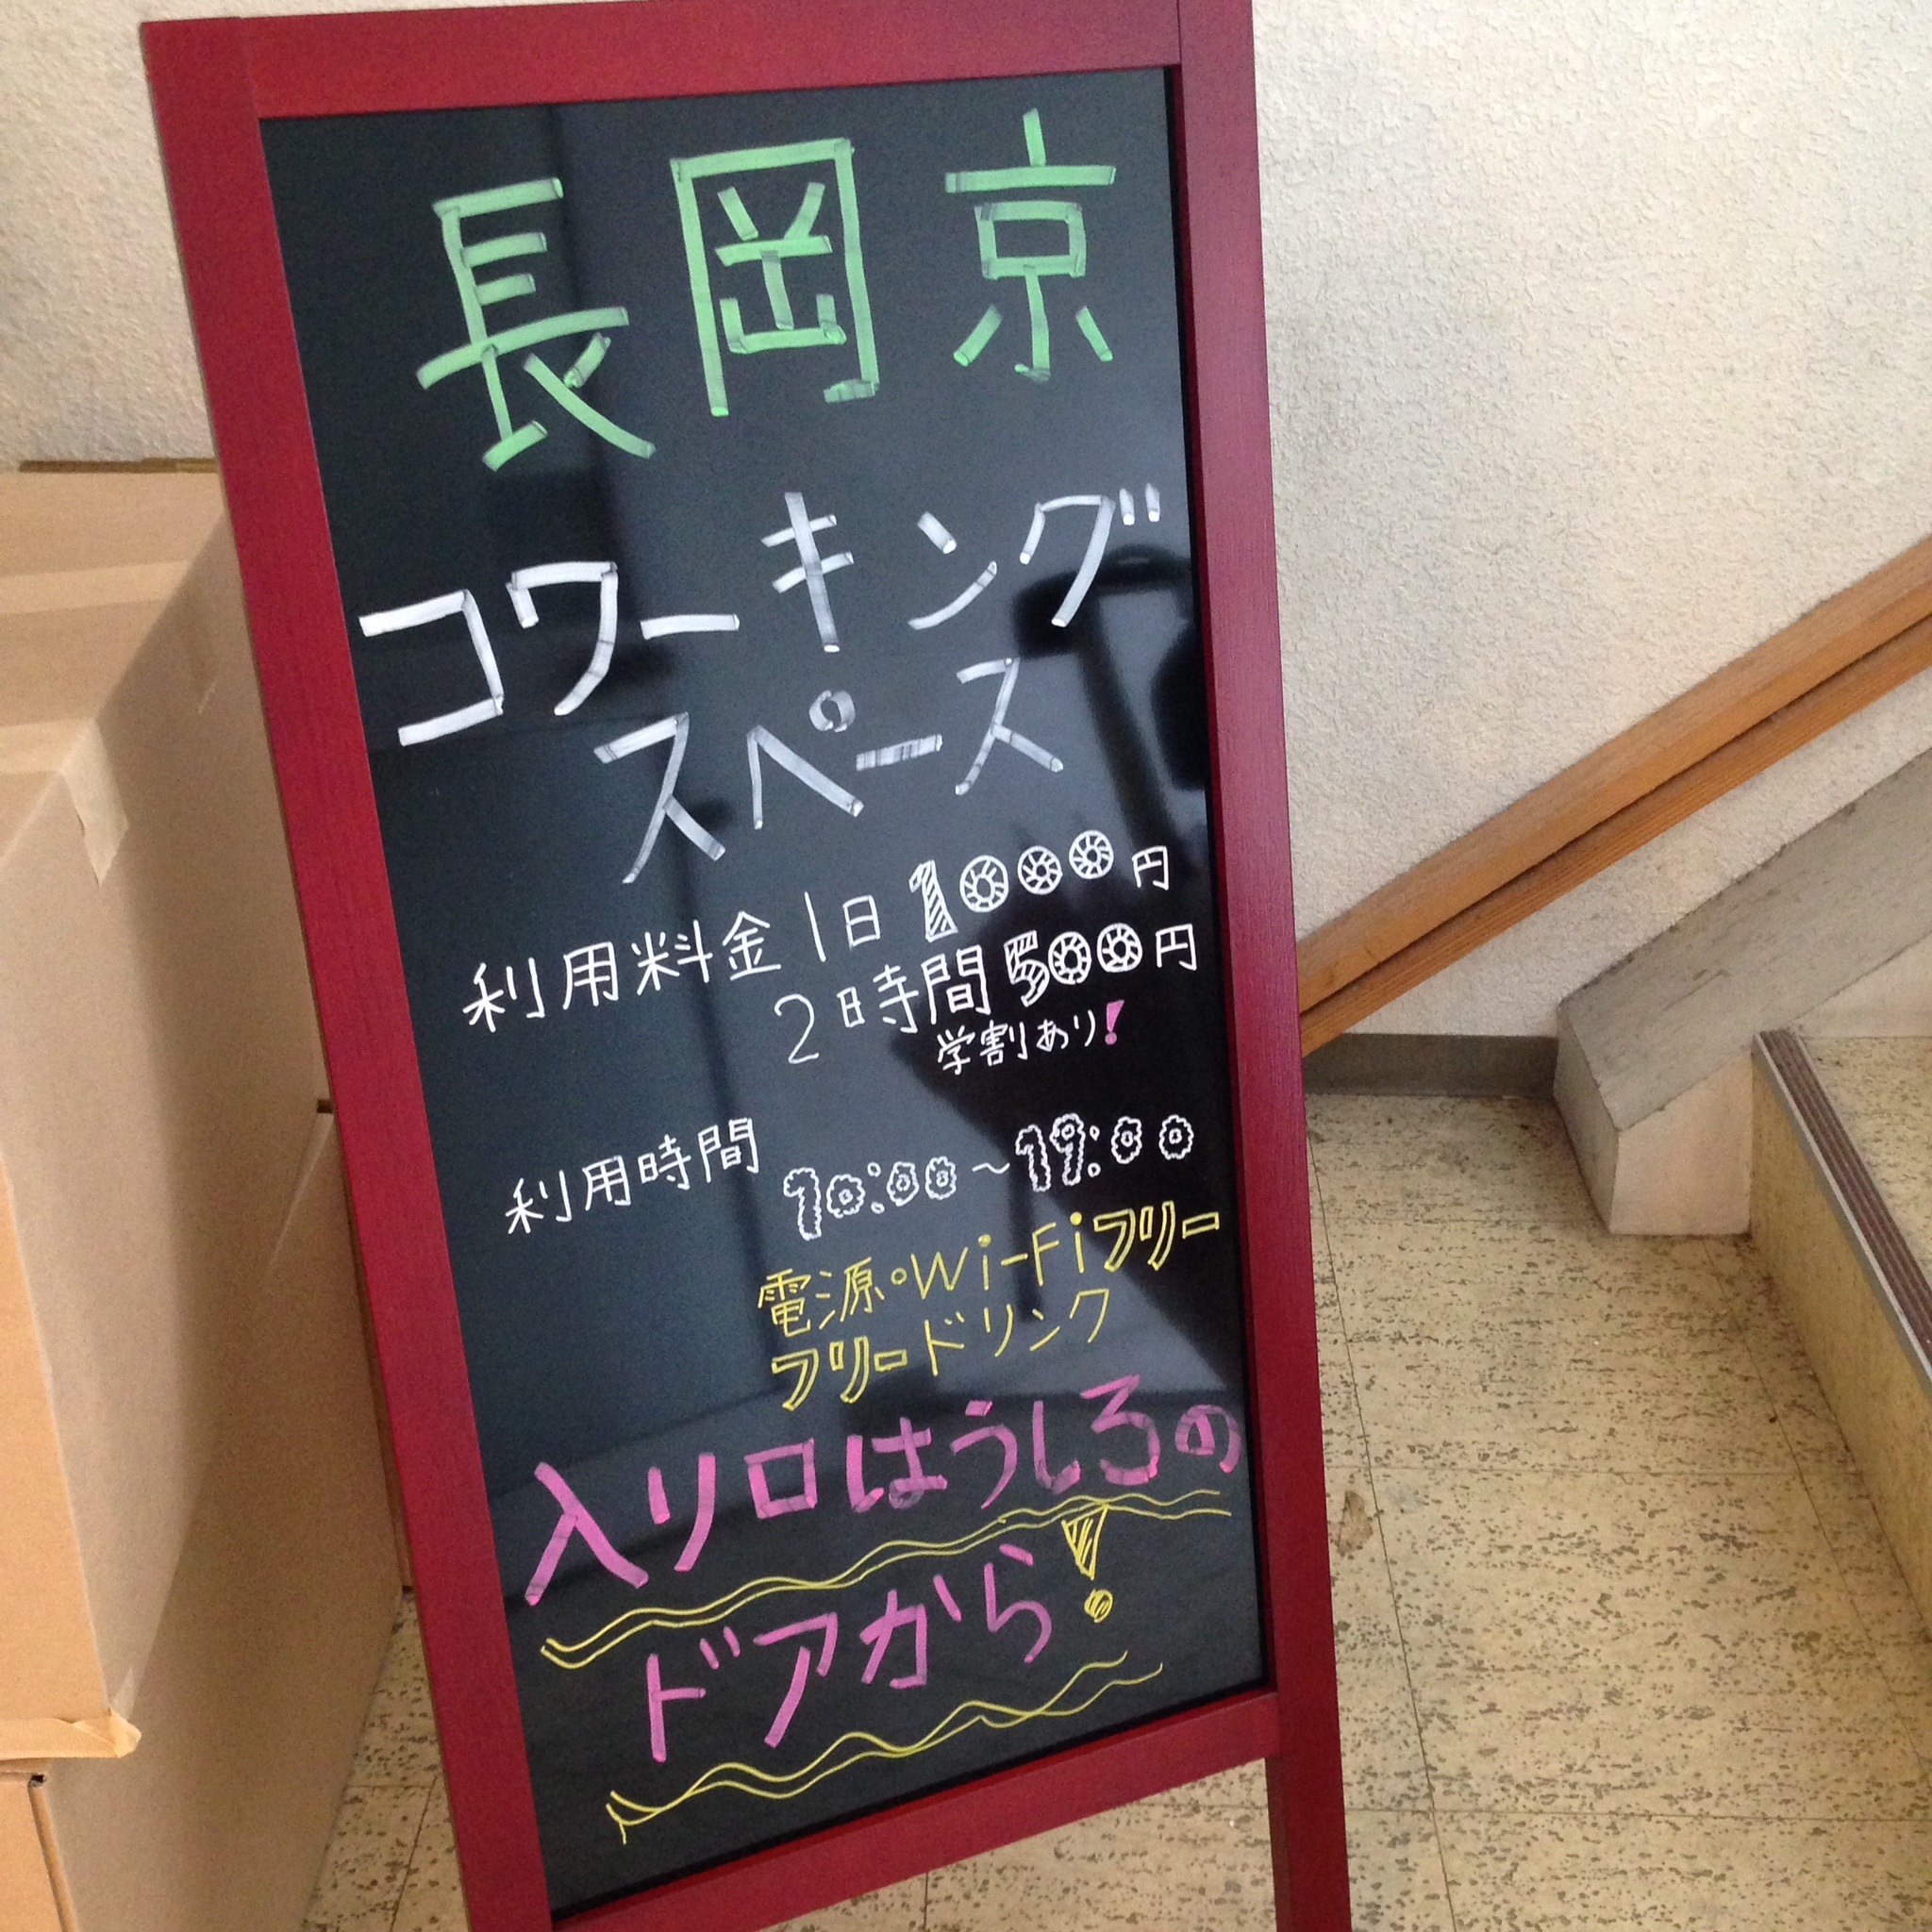 長岡京
コワーキング
スペース
利用料金 1日 1000円
2時間 500円
学割あり!
利用時間 10:00～19:00
電源・Wi-Fiフリー
フリードリンク
入り口はうしろの
ドアから!